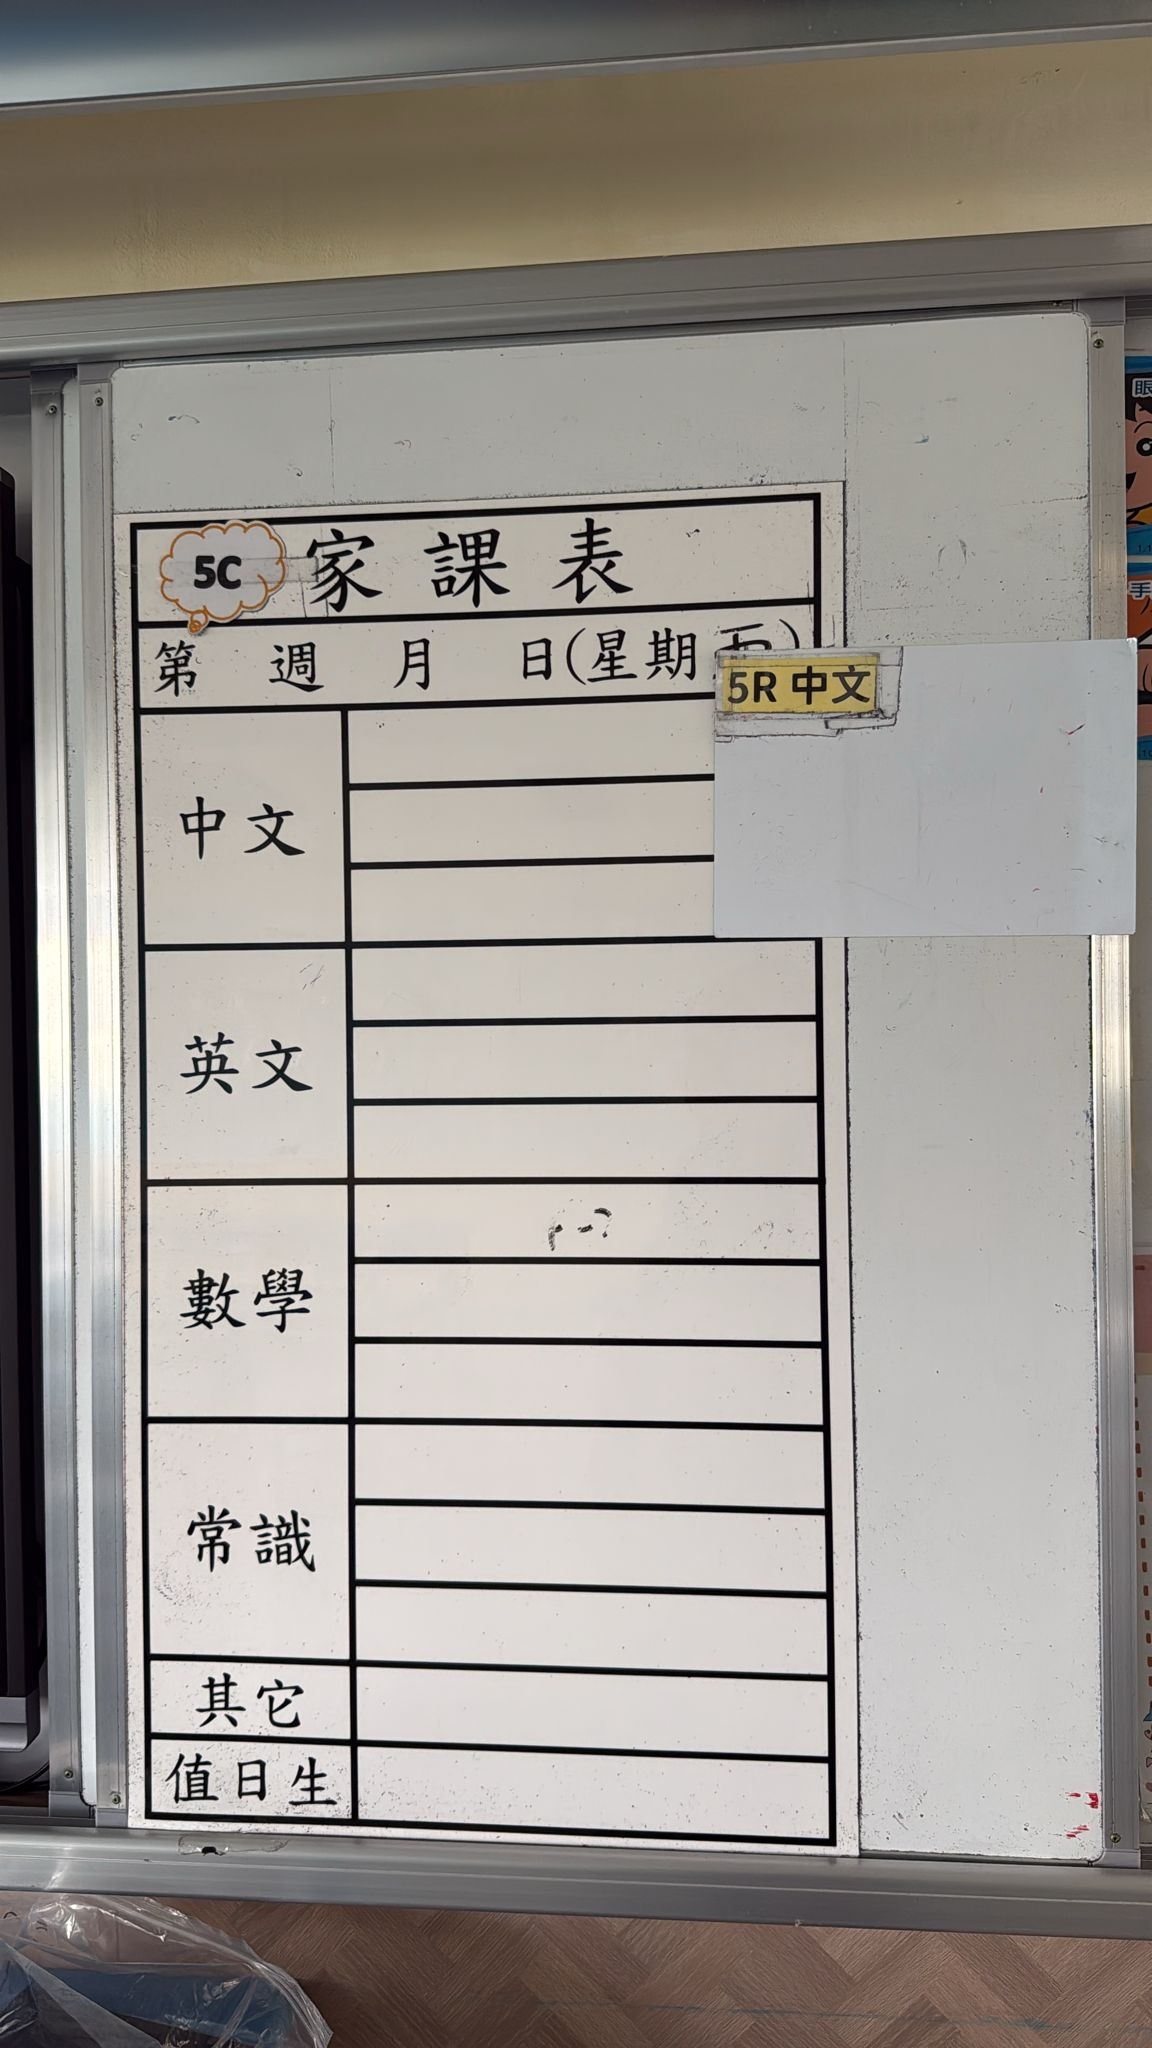 5C
家課表
第 週 月 日(星期 )
5R 中文
中文
英文
數學
常識
其它
值日生
眼
手